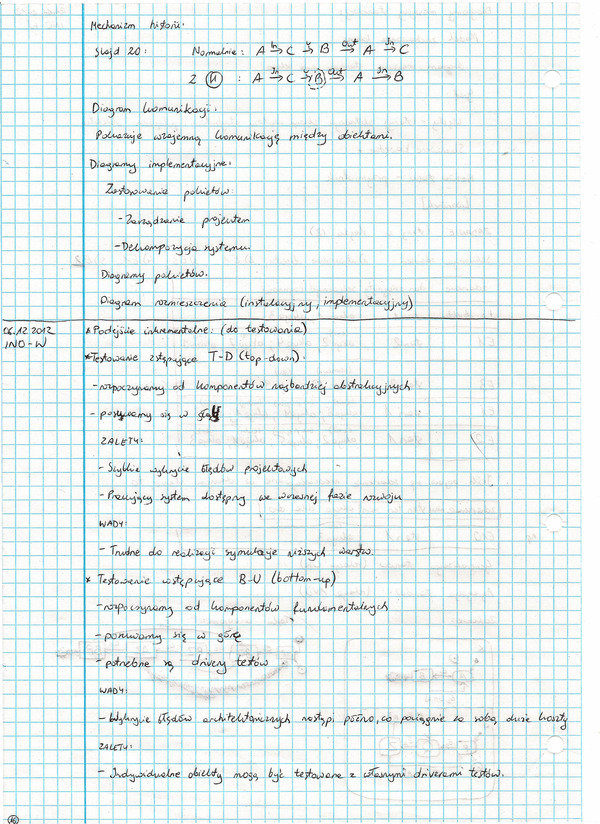 Mechanizm historii.
Slajd 20: Normalnie: A →In C →U B →Out A →In C
Z (H) : A →In C →U (B) →Out A →In B
Diagram komunikacji.
Pokazuje wzajemną komunikację między obiektami.
Diagramy implementacyjne:
Zastosowania pakietów:
- Zarządzanie projektem
- Dekompozycja systemu.
Diagramy pakietów.
Diagram rozmieszczenia (instalacyjny, implementacyjny)
06.12.2012 * Podejście inkrementalne: (do testowania)
INO-W
* Testowanie zstępujące T-D (top-down).
- rozpoczynamy od komponentów najbardziej abstrakcyjnych
- posuwamy się w
ZALETY:
- Szybkie wykrycie błędów projektowych
- Pracujący system dostępny we wczesnej fazie rozwoju
WADY:
- Trudne do realizacji symulacje niższych warstw.
* Testowanie wstępujące B-U (bottom-up)
- rozpoczynamy od komponentów fundamentalnych
- posuwamy się w górę
- potrzebne są drivery testów.
WADY:
- Wykrycie błędów architektonicznych nastąpi późno, co pociągnie za sobą duże koszty
ZALETY:
- Indywidualne obiekty mogą być testowane z własnymi driverami testów.